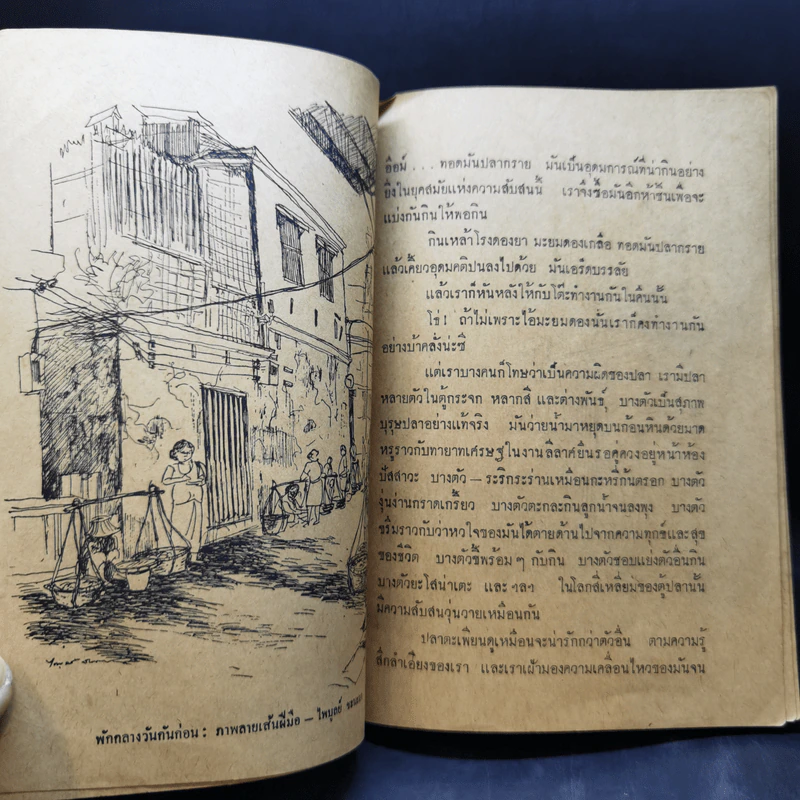 พักกลางวันกันก่อน : ภาพลายเส้นฝีมือ — ไพบูลย์
อือม์ . . . ทอดมันปลากราย มันเป็นอุดมการณ์ที่น่ากินอย่าง
ยิ่งในยุคสมัยแห่งความสับสนนี้ เราจึงซื้อมันอีกห้าชิ้นเพื่อจะ
แบ่งกันกินให้พอกิน
กินเหล้าโรงดองยา มะยมดองเกลือ ทอดมันปลากราย
แล้วเคี้ยวอุดมคติปนลงไปด้วย มันเอร็ดบรรลัย
แล้วเราก็หันหลังให้กับโต๊ะทำงานกันในคืนนั้น
โธ่ ! ถ้าไม่เพราะไอ้มะยมดองนั่นเราก็คงทำงานกัน
อย่างบ้าคลั่งน่ะซี
แต่เราบางคนก็โทษว่าเป็นความผิดของปลา เรามีปลา
หลายตัวในตู้กระจก หลากสี และต่างพันธุ์ บางตัวเป็นสุภาพ
บุรุษปลาอย่างแท้จริง มันว่ายน้ำมาหยุดบนก้อนหินด้วยมาด
หรูราวกับทายาทเศรษฐีในงานลีลาศยืนรอคู่ควงอยู่หน้าห้อง
ปัสสาวะ บางตัว — ระริกระร่านเหมือนกะหรี่ก้นตรอก บางตัว
งุ่นง่านกราดเกรี้ยว บางตัวตะกละกินลูกน้ำจนลงพุง บางตัว
ซึมราวกับว่าหัวใจของมันได้ตายด้านไปจากความทุกข์และสุข
ของชีวิต บางตัวขี้พร้อม ๆ กับกิน บางตัวชอบแย่งตัวอื่นกิน
บางตัวยะโสน่าเตะ และ ฯลฯ ในโลกสี่เหลี่ยมของตู้ปลานั้น
มีความสับสนวุ่นวายเหมือนกัน
ปลาตะเพียนดูเหมือนจะน่ารักกว่าตัวอื่น ตามความรู้
สึกลำเอียงของเรา และเราเฝ้ามองความเคลื่อนไหวของมันจน